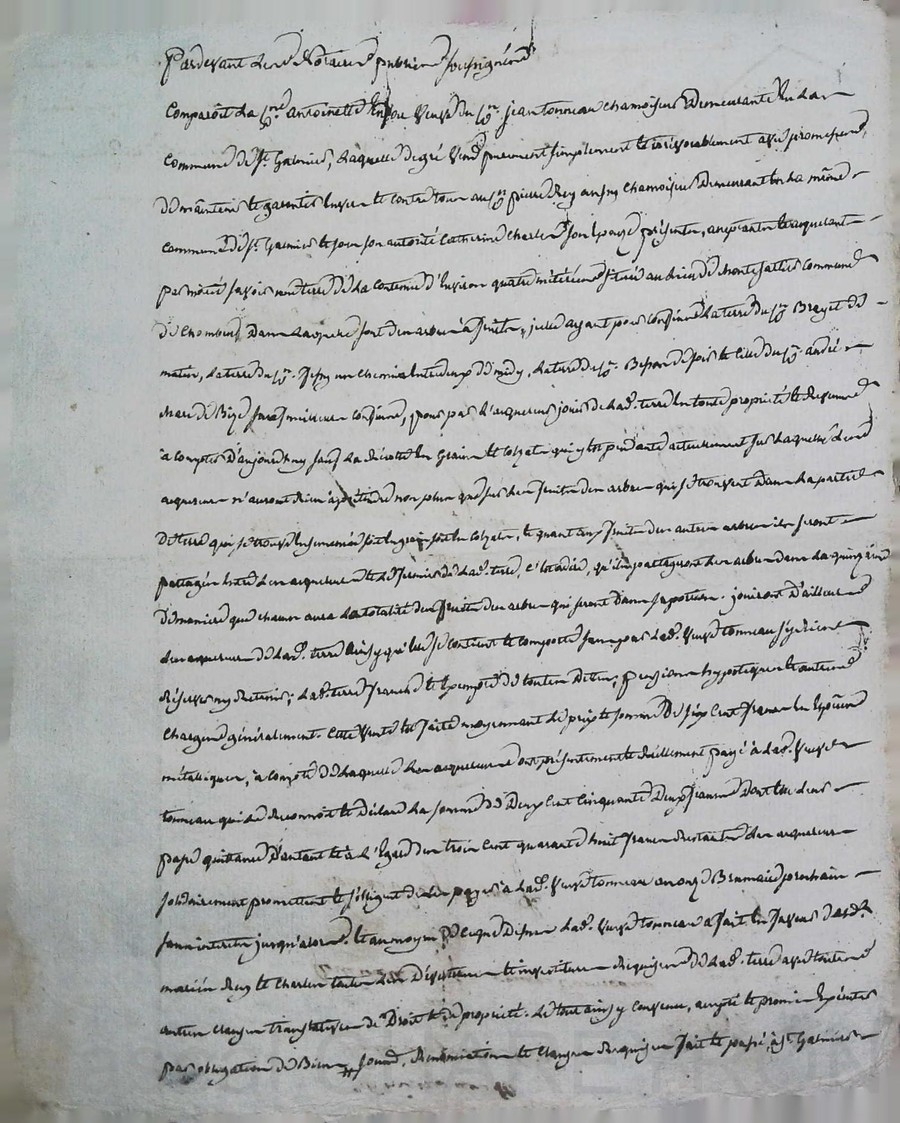 Pardevant les Notaires publics soussignés
Comparoît la Cne Antoinette veuve du Cn jean tonneau chamoiseur Demeurante En la
Commune de St Galmier, Laquelle de gré vend purement simplement et irrévocablement avec promesse
de maintenir et garentir Envers et contre tous au Cn pierre Rey aussy chamoiseur Demeurant En la même
commune de St Galmier et sous son autorité Catherine Charles son Epouse présents, acceptants et acquerant
par moitié savoir une terre de la contenue d'Environ quatre méterées située au lieu de commune
de Chambeuf, Dans laquelle sont des arbres à fruits, icelle ayant pour confins la terre du Cn de
matin, la terre du Cn un chemin Entredeux de midy, la terre du Cn de soir et celle du Cn andré
de Bize sauf meilleurs confins, pour par l'acquereurs jouir de lad. terre En toute propriété et Revenus
à compter D'aujourd'huy sauf la Récolte En Grains et colzats qui y est pendante actuellement sur laquelle lesd.
acquereurs n'auront Rien à prétendre non plus que sur les fruits des arbres qui se trouvent Dans la partie
De terre qui se trouve Ensemencée soit En grain soit En colzats, et quant aux fruits des autres arbres ils seront
partagés Entre les acquereurs et le fermier de lad. terre, c'est à dire, qu'ils partageront les arbres dans la
De manière que chacun aura la totalité des fruits des arbres qui seront Dans sa portion. jouiront D'ailleurs
les acquereurs de lad. terre Ainsy qu'elle se contient et comporte sans par lad. veuve tonneau s'y Rien
Réserver ny Retenir; lad. terre franche et Exempte de toutes Dettes, pensions hypotheques et autres
Charges généralement. Cette vente Est faite moyennant le prix et somme De six Cent francs En Espèces
métalliques, à compte de laquelle les acquereurs ont présentement et Réellement payé à lad. veuve
tonneau qui le Reconnoît et Déclare la somme de Deux Cent Cinquante Deux francs Dont Elle leurs
passe quittance D'autant et à l'Egard des trois Cent quarante huit francs Restants les acquereurs
solidairement promettent et s'obligent de les payer à lad. veuve tonneau au onze Brumaire prochain
sans interêts jusqu'alors. Et au moyen De ce que Dessus lad. veuve tonneau a fait En faveur desd.
mariés Rey et Charles toutes les Dévestitures et investitures Requises de lad. terre avec toutes
autres clauses translatives de Droit et de propriété. Le tout ainsy convenu, accepté et promis Exécuter
par obligation de Biens, soumd, Renonciations et Clauses Requises fait et passé à St Galmier